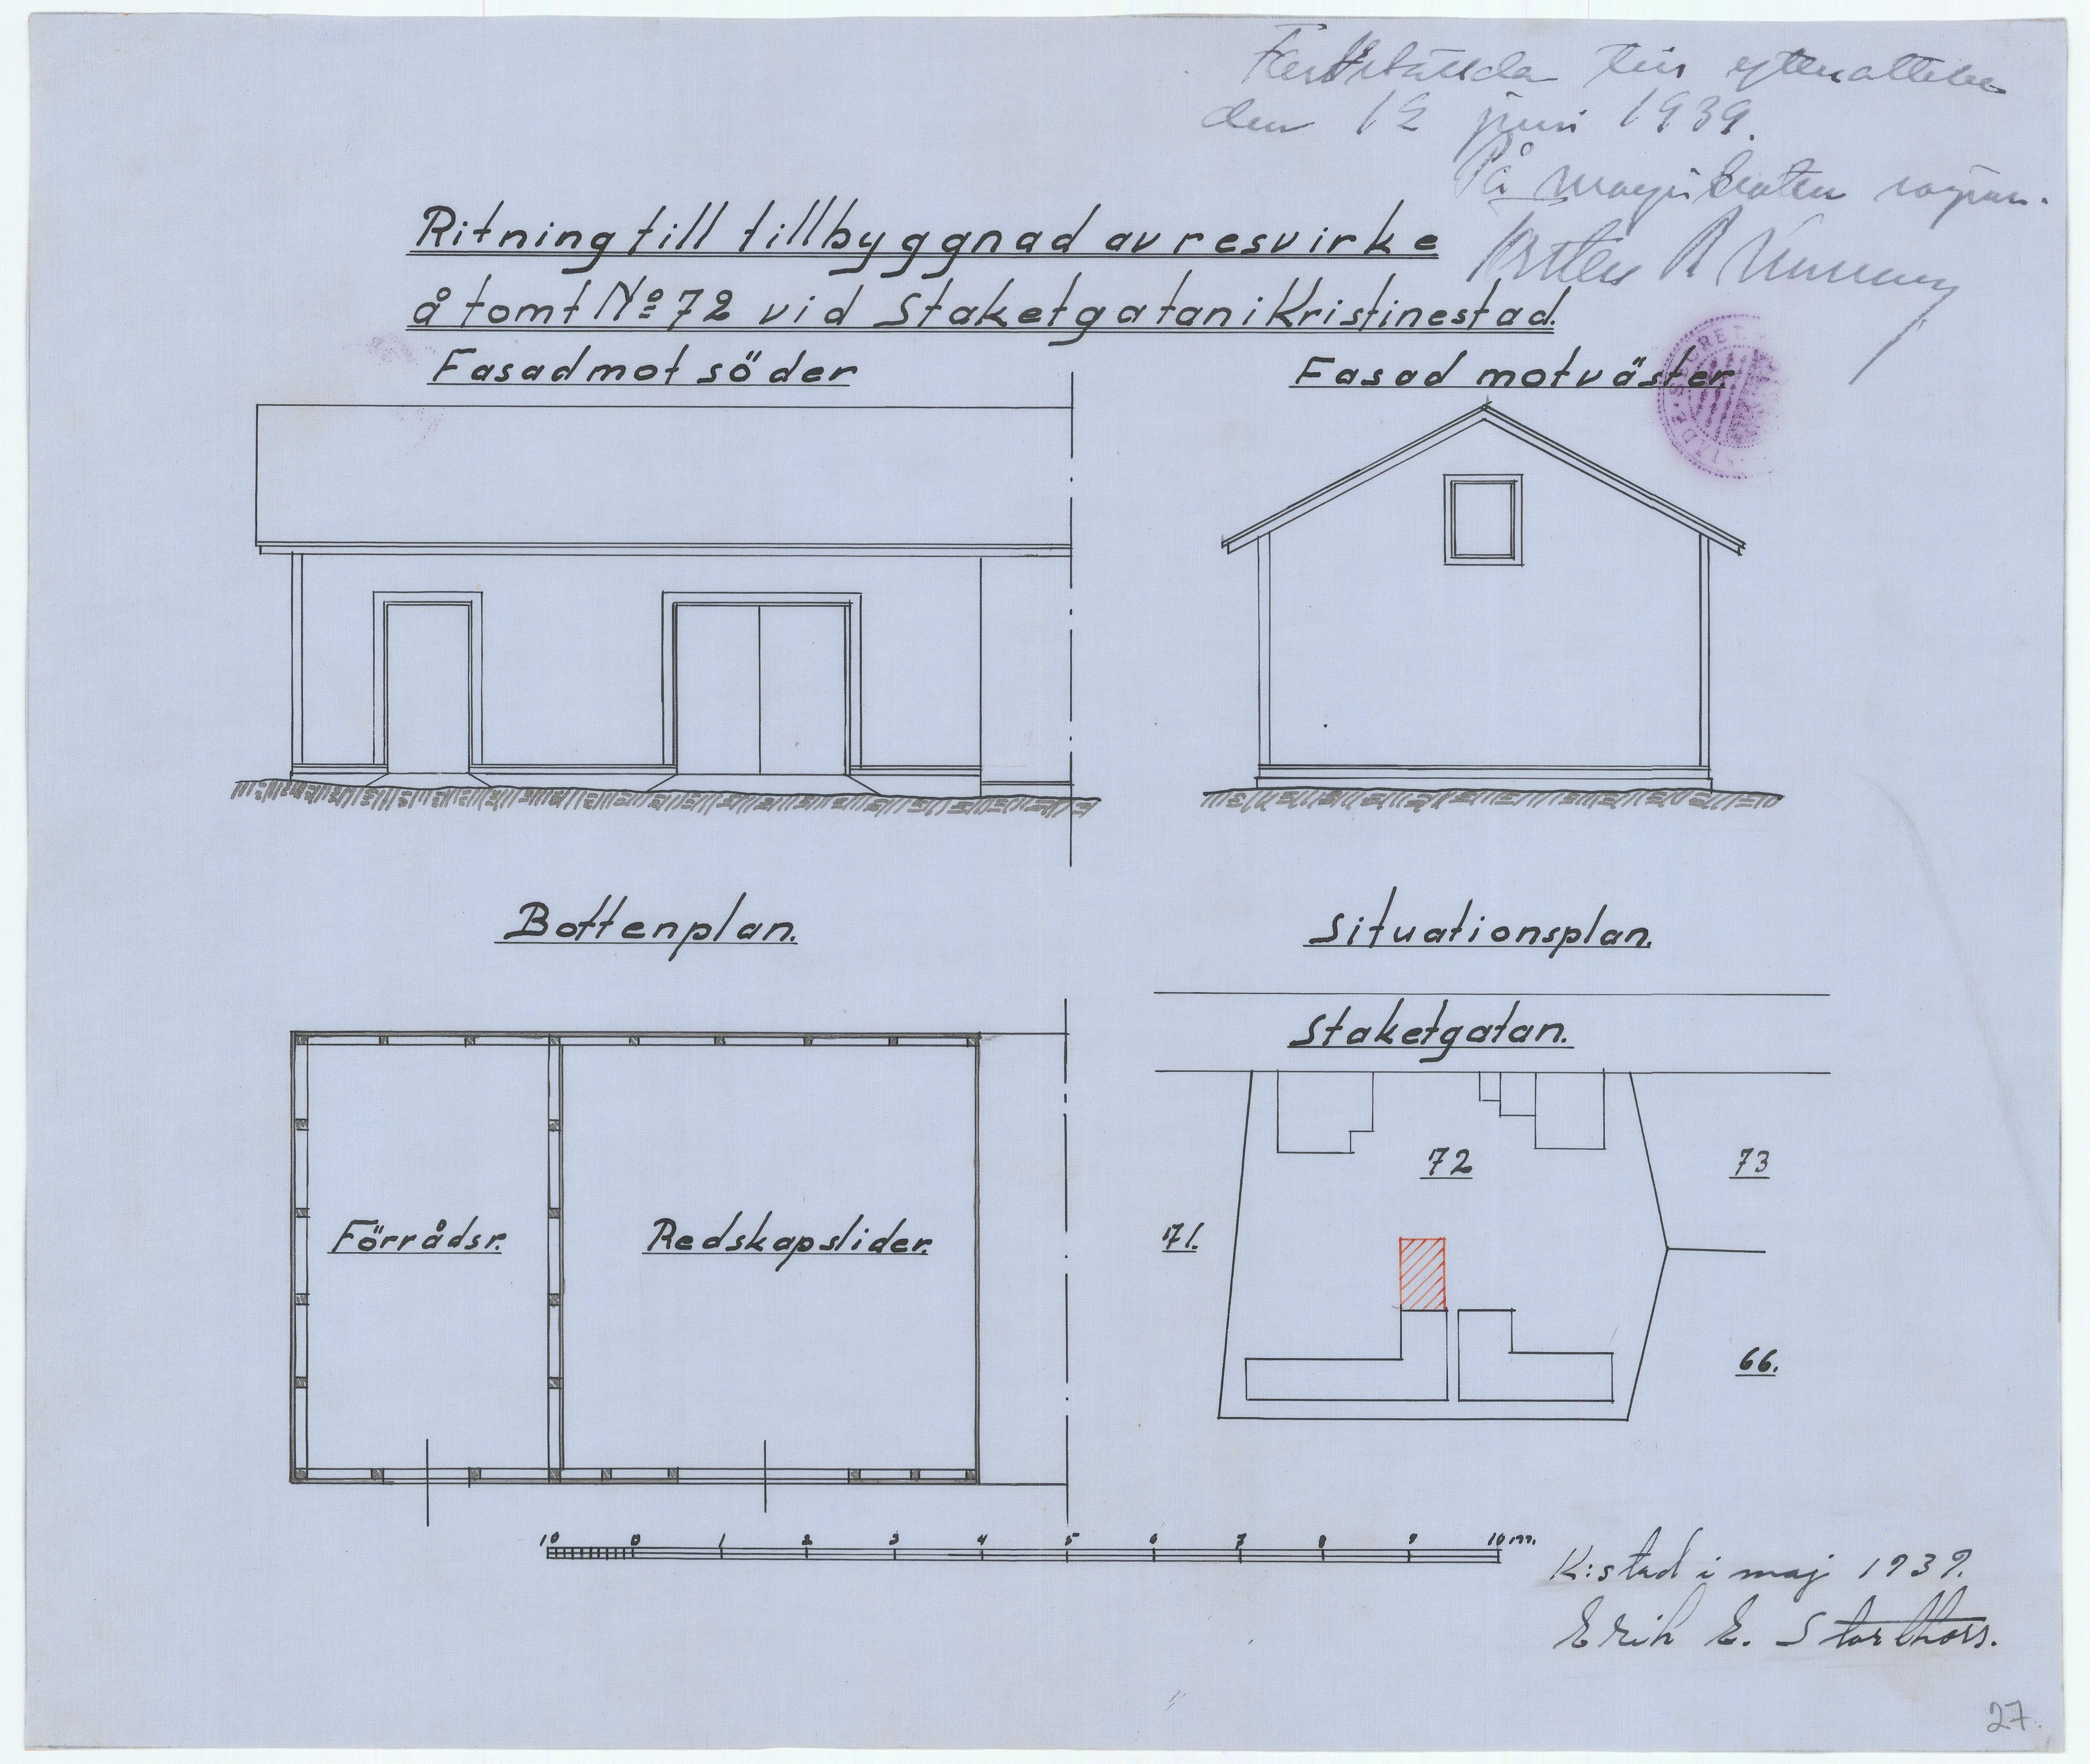 Fastställda till efterrättelse
den 12 juni 1939.
På magistratens vägnar.
Ritning till tillbyggnad av resvirke
å tomt No 72 vid Staketgatan i Kristinestad.
Fasad mot söder
Fasad mot väster.
Bottenplan.
Situationsplan.
Staketgatan.
72
73
71.
Förrådsr.
Redskapslider.
66.
10 0 1 2 3 4 5 6 7 8 9 10 m.
K:stad i maj 1939.
Erik E. Storthors.
27.